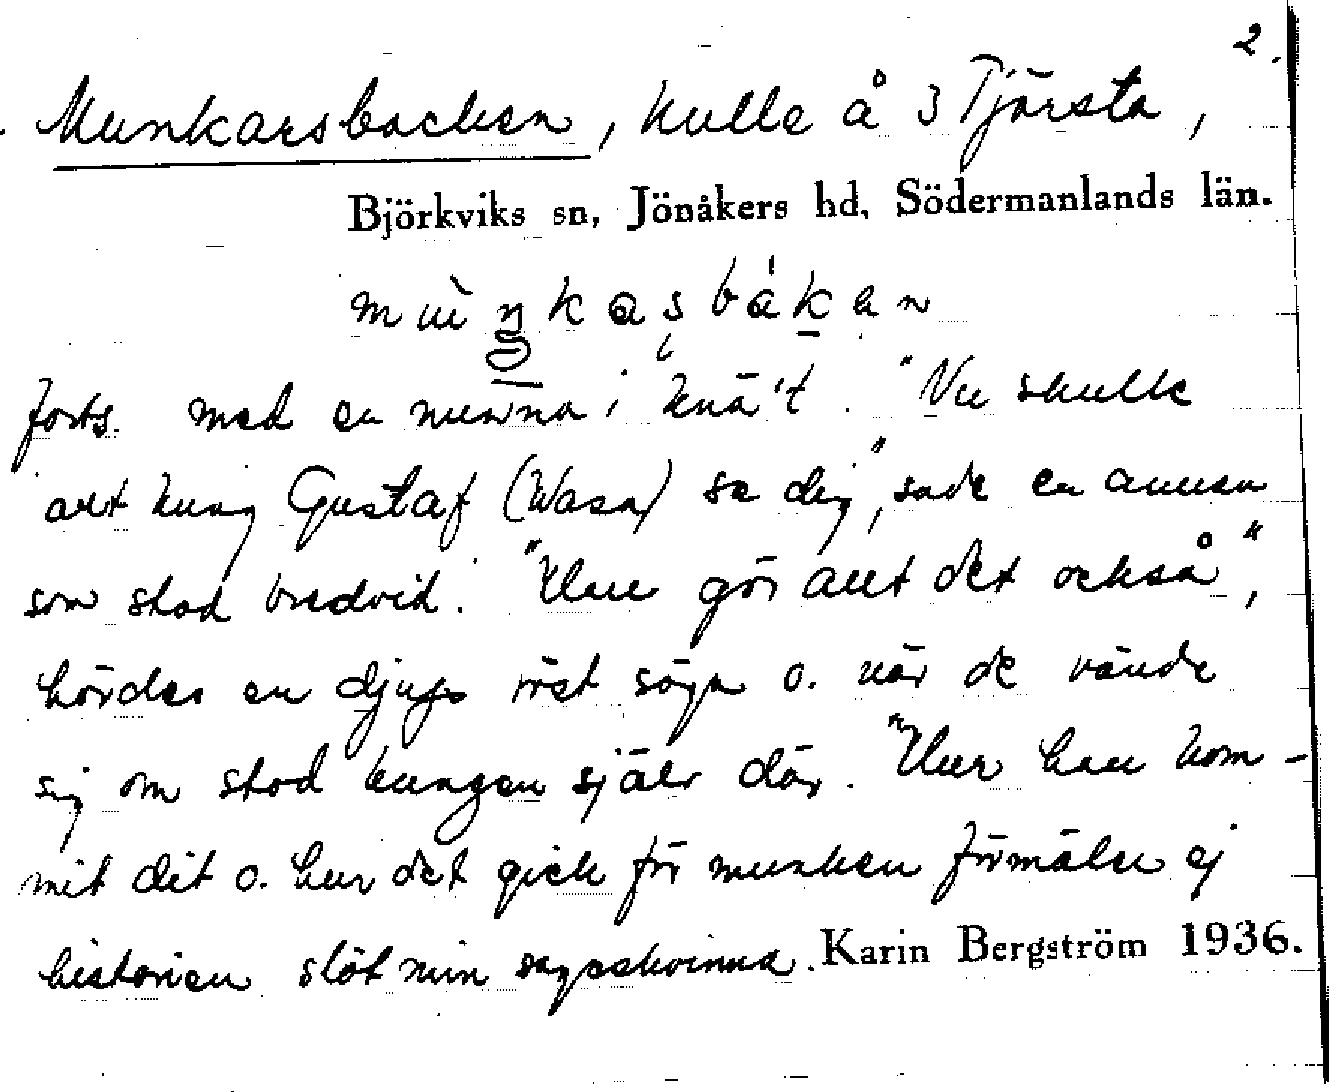 2.
Munkarsbacken, kulle å 3 Tjärsta,
Björkviks sn, Jönåkers hd, Södermanlands län.
forts. med en nunna i knä't. "Nu skulle
allt kung Gustaf (Wasa) se dig", sade en annan
som stod bredvid. "Han gör allt det också",
hördes en djup röst säga o. när de vände
sig om stod kungen själv där. "Hur han kom-
mit dit o. hur det gick för munken förmäler ej
historien slöt min sageskvinna. Karin Bergström 1936.